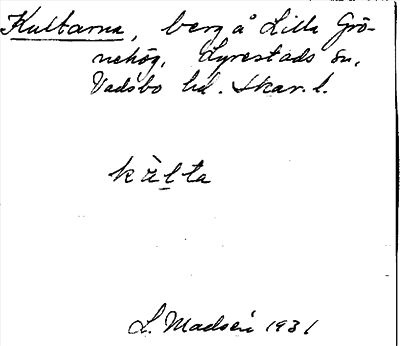 Kultarna, berg å Lilla Grö-
nehög, Lyrestads sn,
Vadsbo hd. Skar. l.
kùl̠ta
L. Madsén 1931